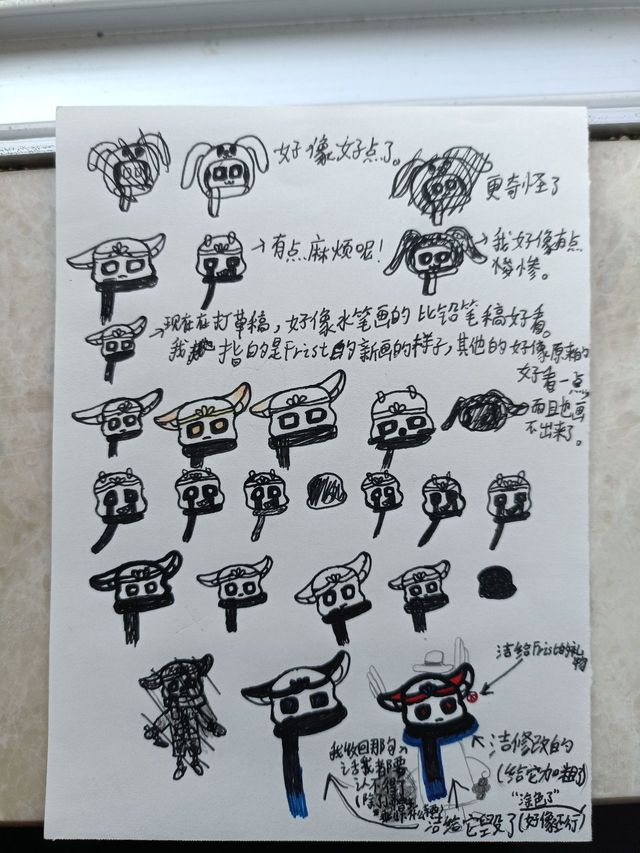 好像好点了。
更奇怪了
有点麻烦呢！
我好像有点
惨惨。
现在在打草稿，好像水笔画的比铅笔稿好看。
我 指的是Frist的新画的样子，其他的好像原来的
好看一点，
而且也画
不出来了。
洁给Frist的礼
物
我收回那句
话我都要
认不得了
洁修改的
(给它加粗了)
"涂色了"
洁给它毁了(好像还行)